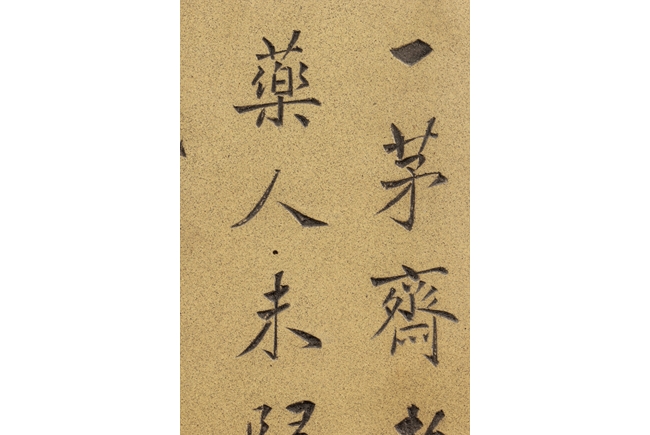 茅齋
藥人未